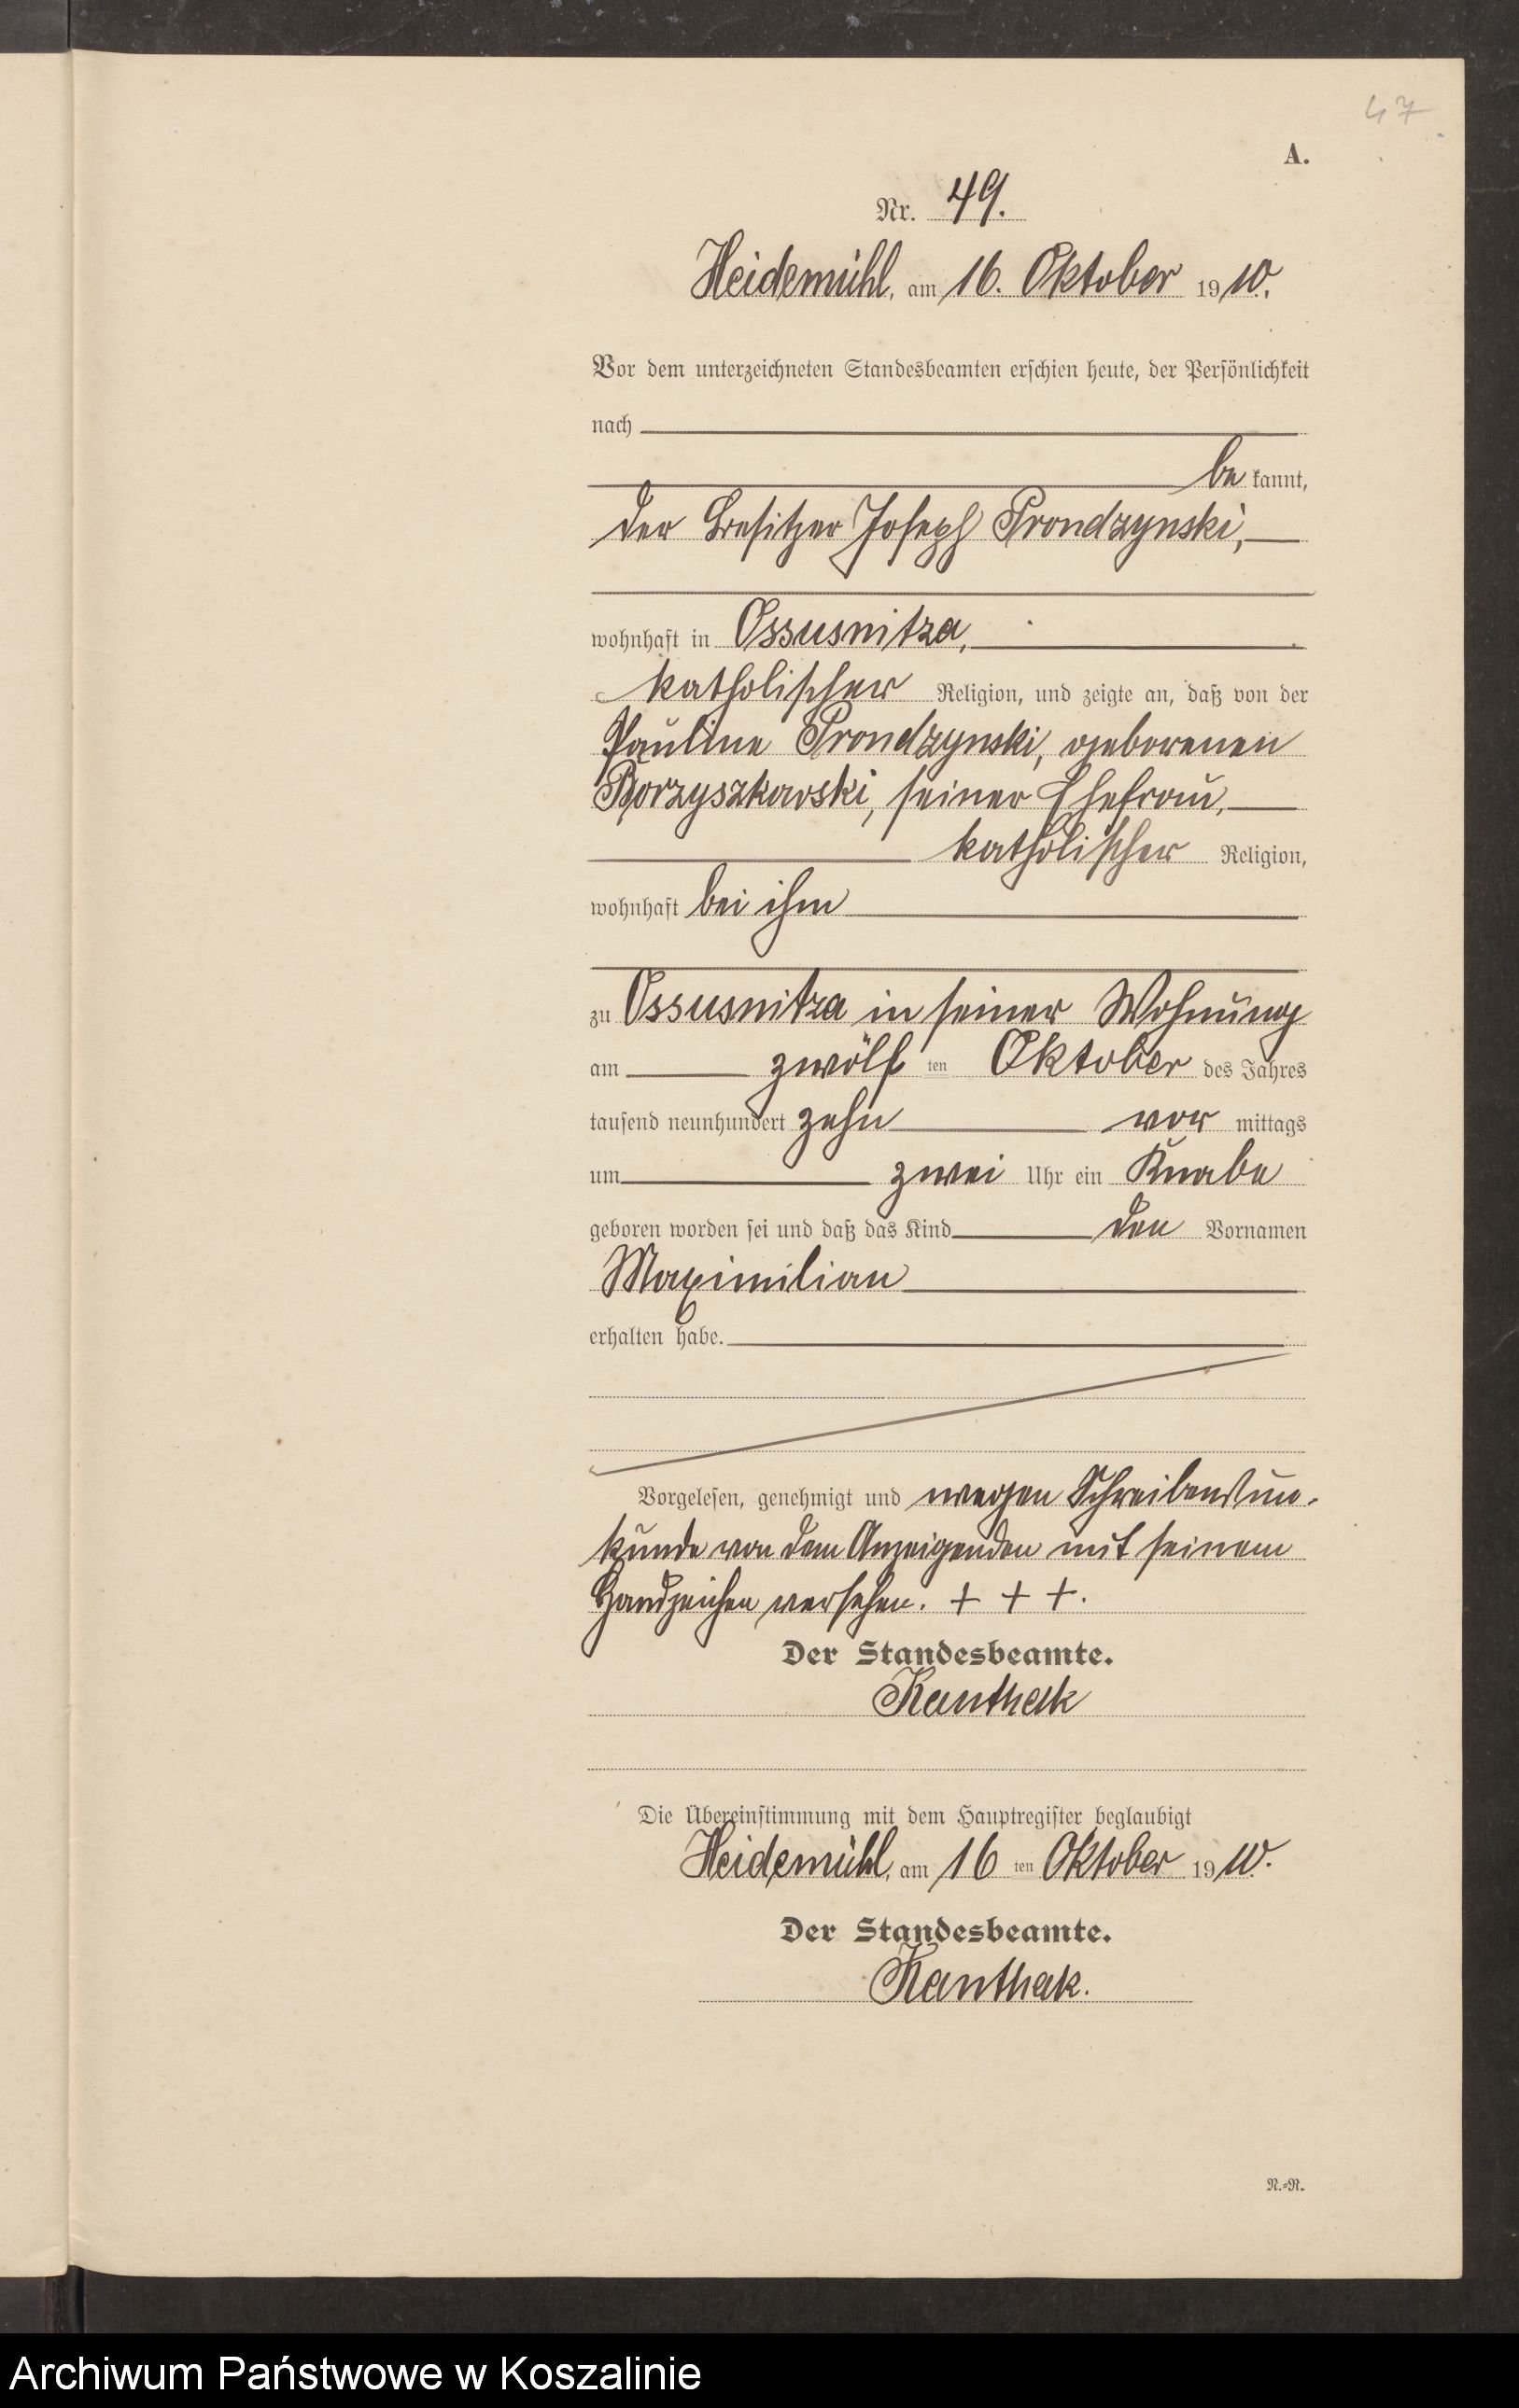 47
A.
Nr. 49.
Heidemühl, am 16. Oktober 1910.
Vor dem unterzeichneten Standesbeamten erschien heute, der Persönlichkeit
nach
be kannt,
der Besitzer Joseph Prondzynski,
wohnhaft in Ossusnitza,
katholischer Religion, und zeigte an, daß von der
Pauline Prondzynski, geborenen
Borzyszkowski, seiner Ehefrau,
katholischer Religion,
wohnhaft bei ihm
zu Ossusnitza in seiner Wohnung
am zwölf ten Oktober des Jahres
tausend neunhundert zehn vor mittags
um zwei Uhr ein Knabe
geboren worden sei und daß das Kind den Vornamen
Maximilian
erhalten habe.
Vorgelesen, genehmigt und wegen Schreibensun-
kunde von dem Anzeigenden mit seinem
Handzeichen versehen. + + +.
Der Standesbeamte.
Kanthak
Die Übereinstimmung mit dem Hauptregister beglaubigt
Heidemühl, am 16 ten Oktober 1910.
Der Standesbeamte.
Kanthak.
N.=R.
Archiwum Państwowe w Koszalinie